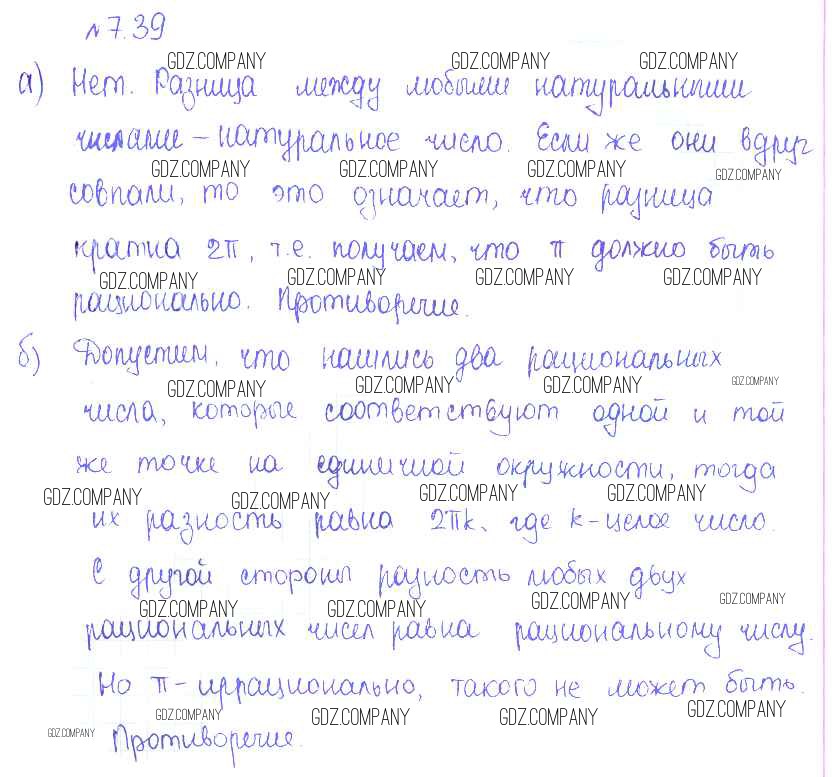 №7.39
а) Нет. Разница между любыми натуральными
числами – натуральное число. Если же они вдруг
совпали, то это означает, что разница
кратна 2π, т.е. получаем, что π должно быть
рационально. Противоречие.
б) Допустим, что нашлись два рациональных
числа, которые соответствуют одной и той
же точке на единичной окружности, тогда
их разность равна 2πk, где k – целое число.
С другой стороны разность любых двух
рациональных чисел равна рациональному числу.
Но π – иррационально, такого не может быть.
Противоречие.
GDZ.COMPANY GDZ.COMPANY GDZ.COMPANY
GDZ.COMPANY GDZ.COMPANY GDZ.COMPANY GDZ.COMPANY
GDZ.COMPANY GDZ.COMPANY GDZ.COMPANY GDZ.COMPANY
GDZ.COMPANY GDZ.COMPANY GDZ.COMPANY GDZ.COMPANY
GDZ.COMPANY GDZ.COMPANY GDZ.COMPANY GDZ.COMPANY
GDZ.COMPANY GDZ.COMPANY GDZ.COMPANY GDZ.COMPANY
GDZ.COMPANY GDZ.COMPANY GDZ.COMPANY GDZ.COMPANY GDZ.COMPANY